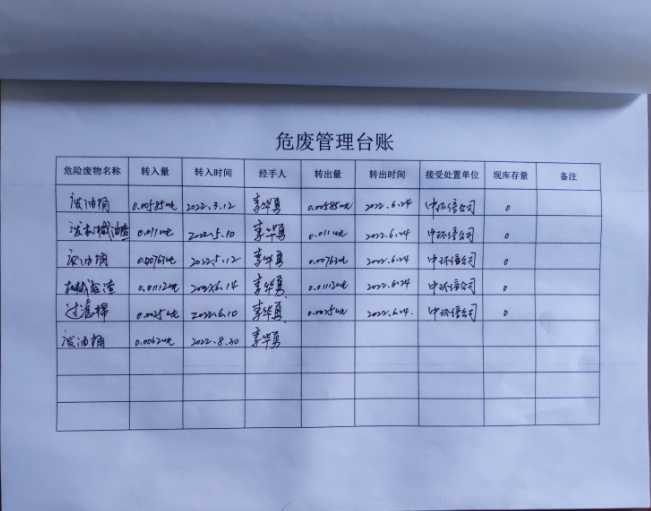 危废管理台账
危险废物名称 转入量 转入时间 经手人 转出量 转出时间 接受处置单位 现库存量 备注
废油桶 0.00585吨 2022.3.12 李华勇 0.00585吨 2022.6.24 中环信公司 0
0.011吨 2022.5.10 李华勇 0.011吨 2022.6.24 中环信公司 0
废油桶 0.00763吨 2022.5.12 李华勇 0.00763吨 2022.6.24 中环信公司 0
0.01112吨 2022.6.14 李华勇 0.01112吨 2022.6.24 中环信公司 0
过滤棉 0.0025吨 2022.6.10 李华勇 0.0025吨 2022.6.24. 中环信公司 0
废油桶 0.0062吨 2022.8.30 李华勇